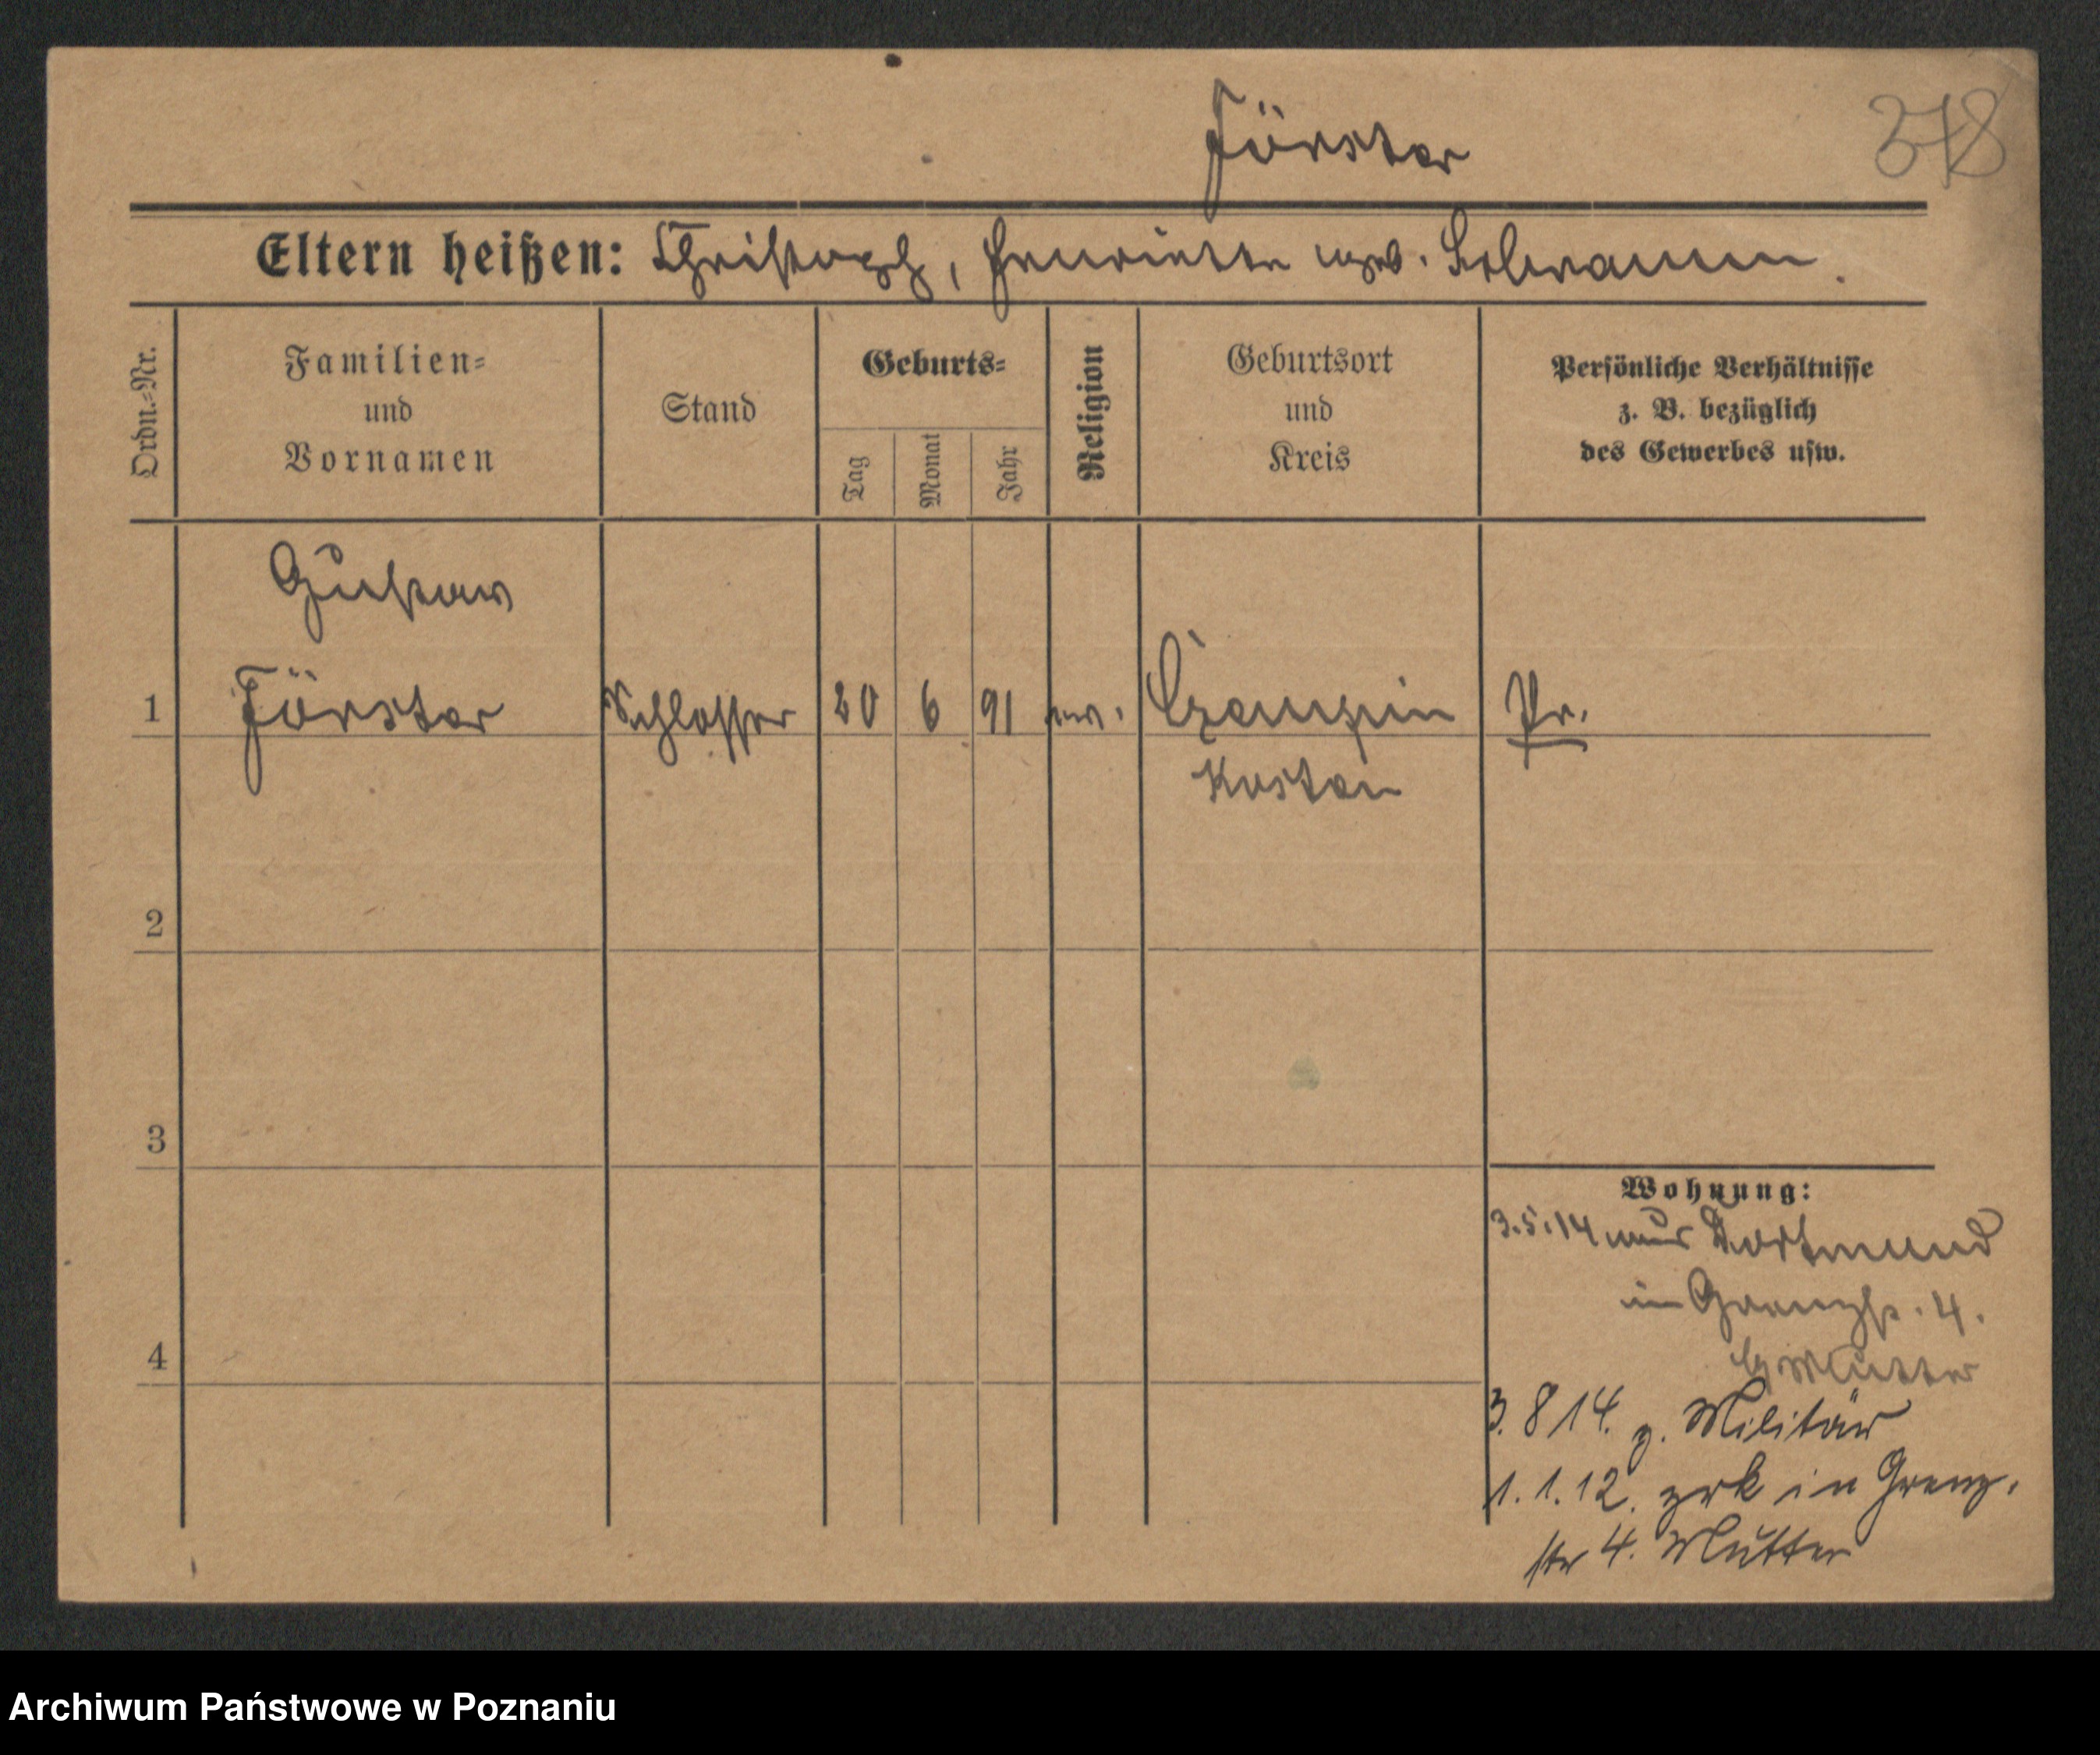 Förster
378
Eltern heißen: Christoph, Henriette geb.
Ordn.-Nr.
Familien-
und
Vornamen
Stand
Geburts-
Tag
Monat
Jahr
Religion
Geburtsort
und
Kreis
Persönliche Verhältnisse
z. B. bezüglich
des Gewerbes usw.
Gustav
1 Förster Schlosser 20 6 91 ev. Czempin Pr.
Kosten
2
3
4
Wohnung:
3.5.14 aus Dortmund
in Grenzstr. 4.
b/Mutter
3. 8 14. z. Militär
1. 1. 12. zrk in Grenz-
str 4. Mutter
Archiwum Państwowe w Poznaniu